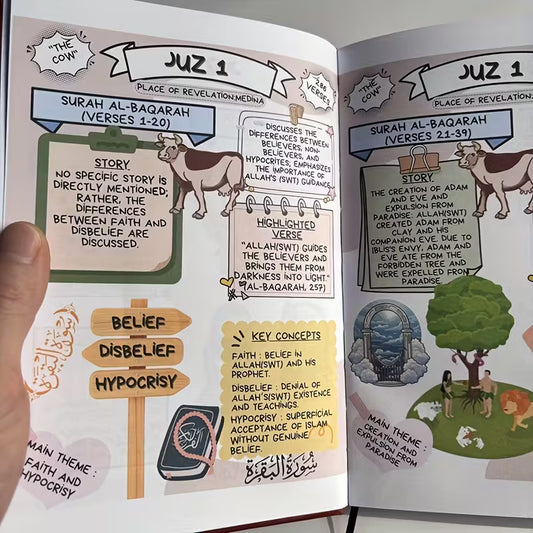 "THE
COW"
JUZ 1
PLACE OF REVELATION:MEDINA
286
VERSES
SURAH AL-BAQARAH
(VERSES 1-20)
STORY
NO SPECIFIC STORY IS
DIRECTLY MENTIONED;
RATHER, THE
DIFFERENCES
BETWEEN FAITH AND
DISBELIEF ARE
DISCUSSED.
DISCUSSES THE
DIFFERENCES BETWEEN
BELIEVERS, NON-
BELIEVERS, AND
HYPOCRITES; EMPHASIZES
THE IMPORTANCE OF
ALLAH'S (SWT) GUIDANCE
HIGHLIGHTED
VERSE
"ALLAH(SWT) GUIDES
THE BELIEVERS AND
BRINGS THEM FROM
DARKNESS INTO LIGHT."
(AL-BAQARAH, 257)
BELIEF
DISBELIEF
HYPOCRISY
KEY CONCEPTS
FAITH : BELIEF IN
ALLAH(SWT) AND HIS
PROPHET.
DISBELIEF : DENIAL OF
ALLAH'S(SWT) EXISTENCE
AND TEACHINGS.
HYPOCRISY : SUPERFICIAL
ACCEPTANCE OF ISLAM
WITHOUT GENUINE
BELIEF.
MAIN THEME :
FAITH AND
HYPOCRISY
سورة البقرة
"THE
COW"
JUZ 1
PLACE OF REVELATION:MEDINA
SURAH AL-BAQARAH
(VERSES 21-39)
STORY
THE CREATION OF ADAM
AND EVE AND
EXPULSION FROM
PARADISE: ALLAH(SWT)
CREATED ADAM FROM
CLAY AND HIS
COMPANION EVE. DUE TO
IBLIS'S ENVY, ADAM AND
EVE ATE FROM THE
FORBIDDEN TREE AND
WERE EXPELLED FROM
PARADISE.
MAIN THEME :
CREATION AND
EXPULSION FROM
PARADISE